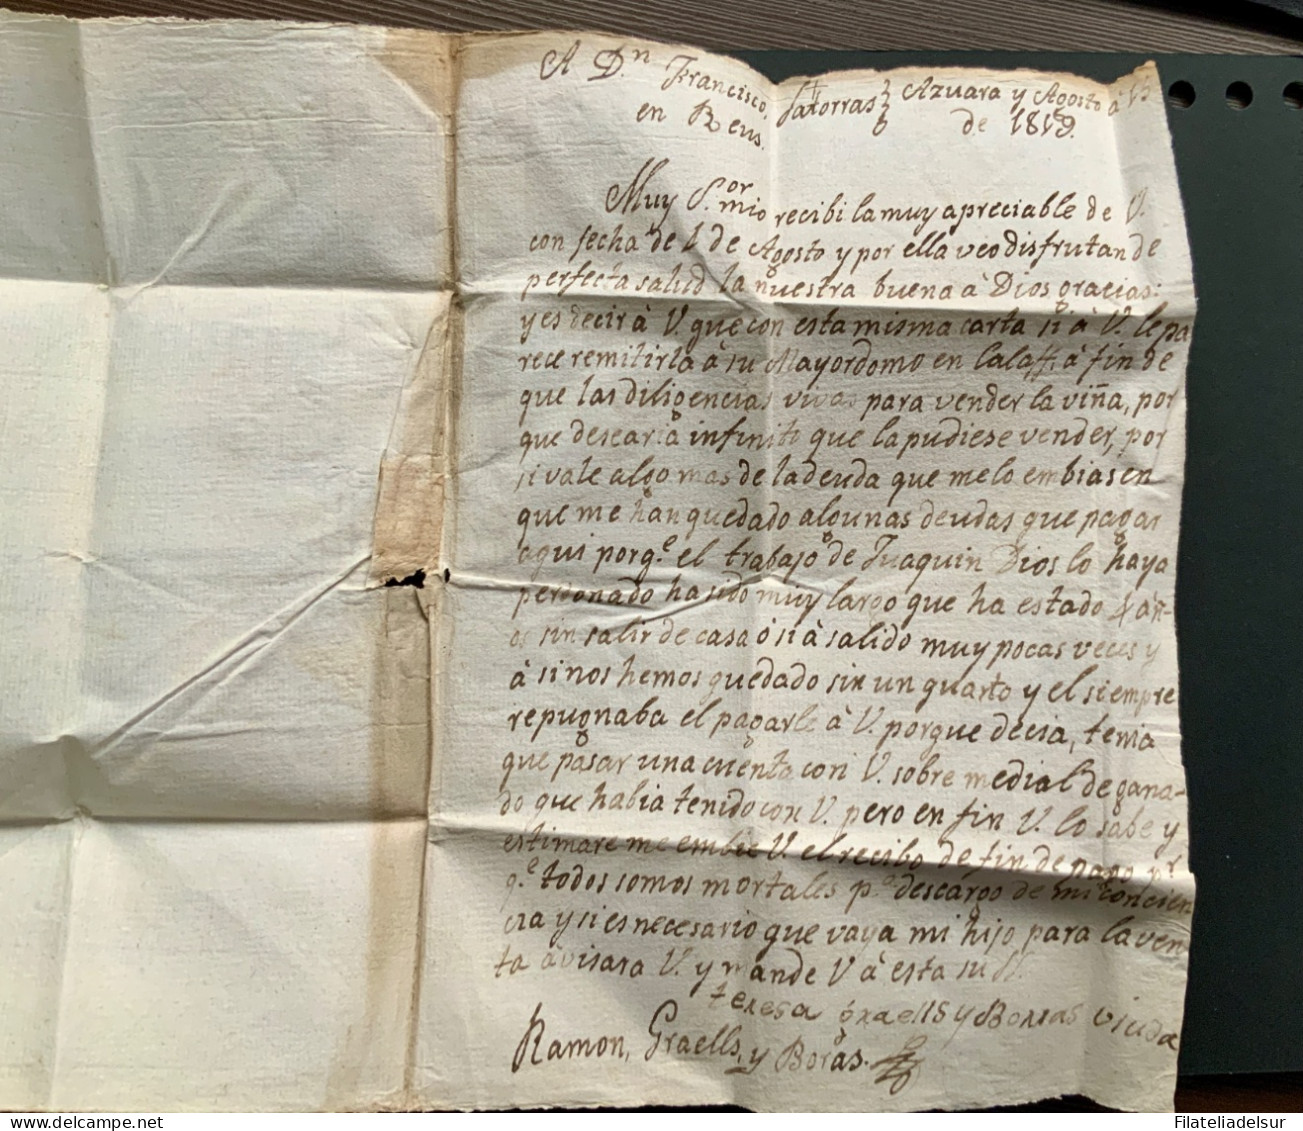 A D.n Francisco Satorras Azuara y Agosto á 15
en Reus. de 1819.
Muy S.or mio recibi la muy apreciable de V.
con fecha de 1 de Agosto y por ella veo disfrutan de
perfecta salud la nuestra buena à Dios gracias:
y es decir à V. que con esta misma carta si à V. le pa
rece remitirla à su Mayordomo en Calaff. à fin de
que las diligencias vivas para vender la viña, por
que desearia infinito que la pudiese vender, por
si vale algo mas de la deuda que me lo embiasen
que me han quedado algunas deudas que pagar
aqui porq.e el trabajo de Juaquin Dios lo haya
perdonado ha sido muy largo que ha estado 4 añ-
os sin salir de casa ó si à salido muy pocas veces y
à si nos hemos quedado sin un quarto y el siempre
repugnaba el pagarle à V. porque decia, tenia
que pasar una cuenta con V. sobre medial de gana-
do que habia tenido con V. pero en fin V. lo sabe y
estimare me embie V. el recibo de fin de pago p.r
q.e todos somos mortales p.a descargo de mi concien
cia y si es necesario que vaya mi hijo para la ven
ta avisara V. y mande V à esta su
teresa graells y Borras viuda
Ramon, Graells, y Borás.
© delcampe.net
Filateliadelsur